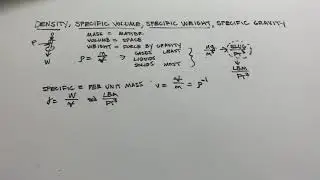 DENSITY, SPECIFIC VOLUME, SPECIFIC WEIGHT, SPECIFIC GRAVITY
MASS = MATTER
P
VOLUME = SPACE
W
WEIGHT = FORCE BY GRAVITY
ρ = m/V
GASES LEAST
LIQUIDS
SOLIDS MOST
SLUG/FT³
LBM/FT³
SPECIFIC = PER UNIT MASS
v = V/m = ρ⁻¹
γ = W/V
LBM/FT³